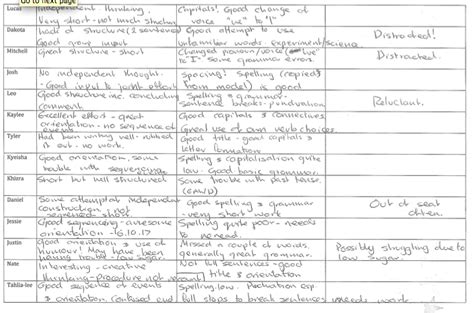 Go to next page
Lucas Independent thinking. Capitals! Good change of
Very short - not much structure voice "we" to "I"
Dakota Lack of structure (1 sentence) Good attempt to use Distracted!
Good group input unfamiliar words experiment/science
Mitchell Great structure - short Changed pronoun/voice ("we" Distracted.
to "I" some grammar errors.
Josh No independent thought. Spacing! Spelling (copied
- Good input to joint effort from model) is good
Leo Good structure inc. concluding Spelling & grammar - Reluctant.
comment sentence breaks - punctuation.
Kaylee Excellent effort - great Good capitals & connectives
orientation - no sequence of events Great use of own verb choices.
Tyler Had been writing well - rubbed Good title - good capitals &
it out - no work. letter formation.
Kyeisha Good orientation, some Spelling & capitalisation quite
trouble with sequencing low. Good basic grammar.
Khiara Short but well structured Some trouble with past tense.
Daniel Some attempt at independent Good spelling & grammar Out of seat
construction - not - very short work often.
sequenced. Short
Jessie Good sequencing - awesome Spelling quite poor - needs
orientation - 16.10.17 to reread.
Justin Good orientation & use of Missed a couple of words, Possibly struggling due to
humour! May have been generally great grammar. low sugar.
having trouble - low sugar.
Nate Interesting - creative Not full sentences - good
thinking - Procedure not recount title & orientation
Tahlia-lee Good sequence of events Spelling low. Punctuation esp.
& orientation. Confused end full stops to break sentences needs work